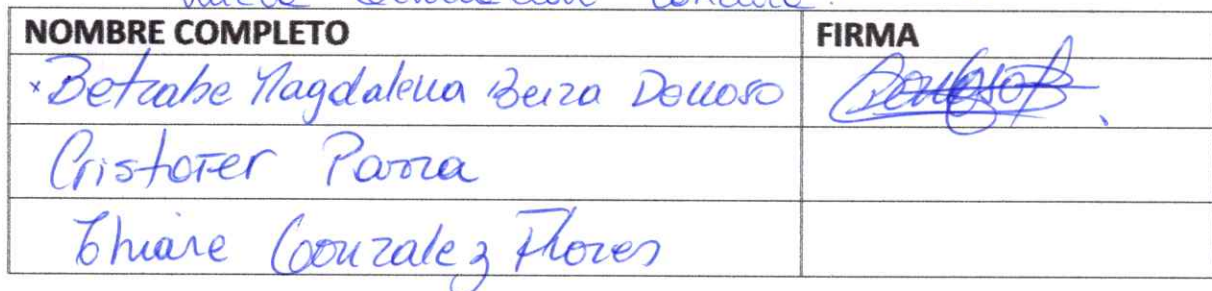 NOMBRE COMPLETO FIRMA
*Betzabe Magdalena Beiza Donoso DonosoB
Cristofer Parra
Thiare Gonzalez Flores